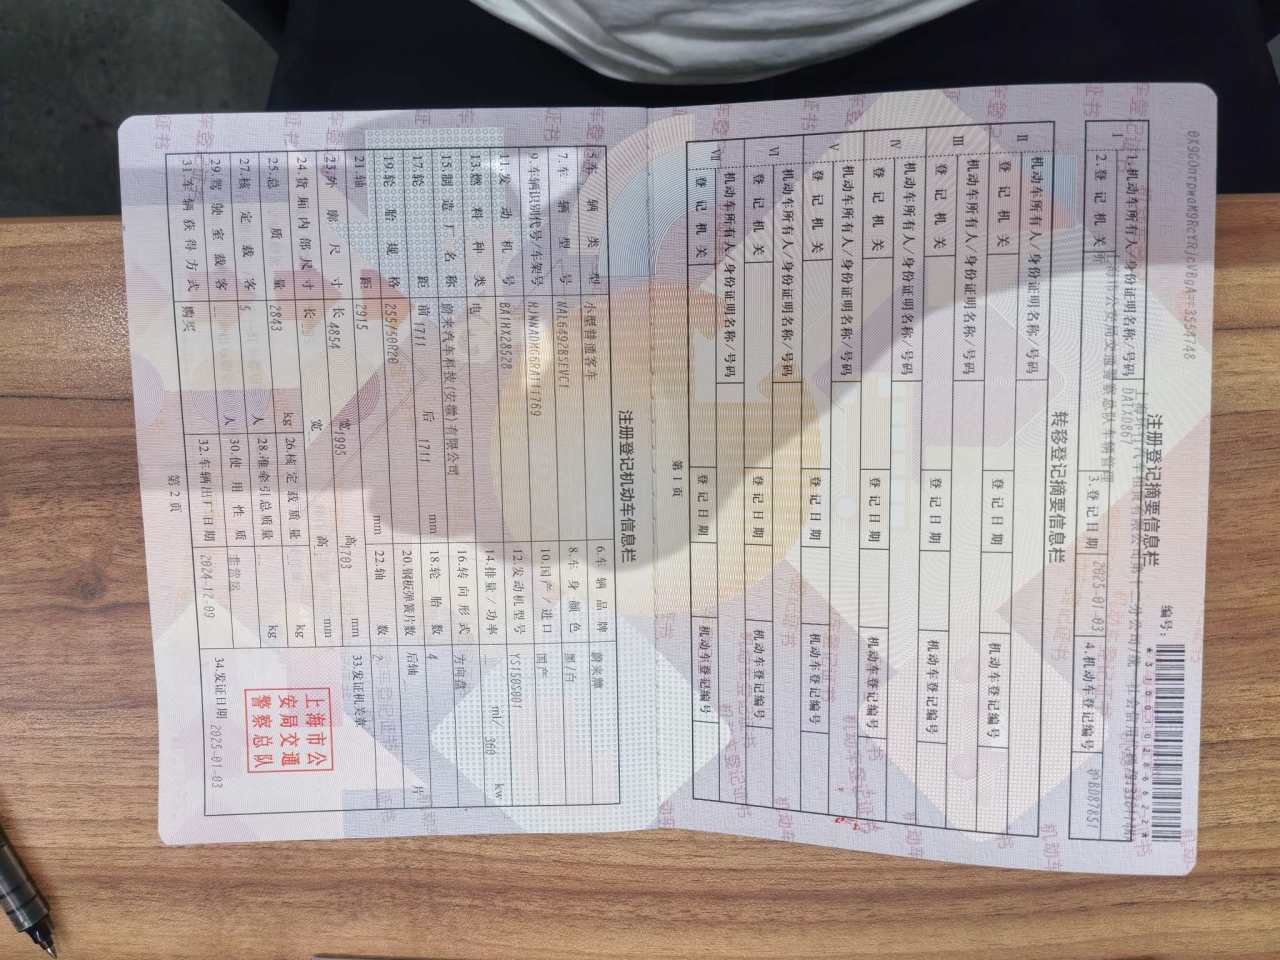 注册登记摘要信息栏
编号：
*310010286622*
Ⅰ
1.机动车所有人/身份证明名称/号码
2.登记机关
3.登记日期
2025-01-03
4.机动车登记编号
沪BD87851
转移登记摘要信息栏
Ⅱ
机动车所有人/身份证明名称/号码
登记机关
登记日期
机动车登记编号
Ⅲ
机动车所有人/身份证明名称/号码
登记机关
登记日期
机动车登记编号
Ⅳ
机动车所有人/身份证明名称/号码
登记机关
登记日期
机动车登记编号
Ⅴ
机动车所有人/身份证明名称/号码
登记机关
登记日期
机动车登记编号
Ⅵ
机动车所有人/身份证明名称/号码
登记机关
登记日期
机动车登记编号
Ⅶ
机动车所有人/身份证明名称/号码
登记机关
登记日期
机动车登记编号
第1页
注册登记机动车信息栏
5.车辆类型 小型普通客车 6.车辆品牌 蔚来牌
7.车辆型号 8.车身颜色 黑/白
9.车辆识别代号/车架号 HJNNADMG6RA111769 10.国产/进口 国产
11.发动机号 BA1HX28528 12.发动机型号 YS150S001
13.燃料种类 电 14.排量/功率 ml/ 360 kw
15.制造厂名称 蔚来汽车科技(安徽)有限公司 16.转向形式 方向盘
17.轮距 前 1711 后 1711 mm 18.轮胎数 4
19.轮胎规格 255/50R20 20.钢板弹簧片数 后轴 片
21.轴距 2915 mm 22.轴数 2
23.外廓尺寸 长 4854 宽 1995 高 1703 mm 33.发证机关章
24.货厢内部尺寸 长 宽 高 mm
25.总质量 2843 kg 26.核定载质量 kg
27.核定载客 5 人 28.准牵引总质量 kg
29.驾驶室载客 人 30.使用性质 非营运
31.车辆获得方式 购买 32.车辆出厂日期 2024-12-09
上海市公
安局交通
警察总队
34.发证日期 2025-01-03
第2页